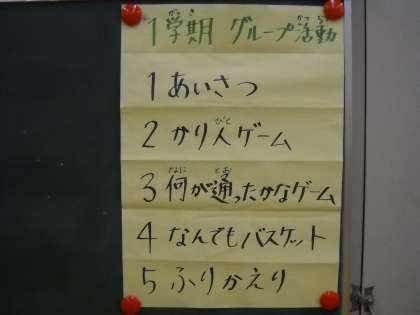 1学期 グループ活動
1 あいさつ
2 かり人ゲーム
3 何が通ったかなゲーム
4 なんでもバスケット
5 ふりかえり